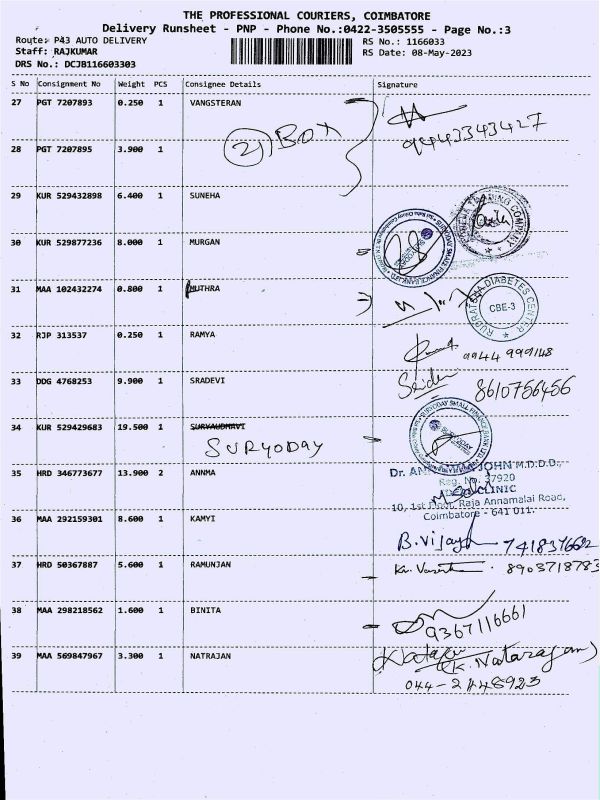 THE PROFESSIONAL COURIERS, COIMBATORE
Delivery Runsheet - PNP - Phone No.:0422-3505555 - Page No.:3
Route: P43 AUTO DELIVERY
RS No.: 1166033
Staff: RAJKUMAR
RS Date: 08-May-2023
DRS No.: DCJB116603303
S No Consignment No Weight PCS Consignee Details Signature
27 PGT 7207893 0.250 1 VANGSTERAN
9443343427
28 PGT 7207895 3.900 1
2) Box
29 KUR 529432898 6.400 1 SUNEHA
TRADING COMPANY
30 KUR 529877236 8.000 1 MURGAN
SURYODAY SMALL FINANCE BANK LTD
31 MAA 102432274 0.800 1 MUTHRA
DIABETES CENTER
CBE-3
32 RJP 313537 0.250 1 RAMYA
9944 999148
33 DDG 4768253 9.900 1 SRADEVI
8610756456
34 KUR 529429683 19.500 1
SURYODAY
SURYODAY SMALL FINANCE BANK LTD
35 HRD 346773677 13.900 2 ANNMA
Dr. JOHN M.D.D.D.,
Reg. No. 37920
CLINIC
10, 1st Floor, Raja Annamalai Road,
Coimbatore - 641 011.
36 MAA 292159301 8.600 1 KAMYI
B.Vijaya 7418376692
37 HRD 50367887 5.600 1 RAMUNJAN
8903718783
38 MAA 298218562 1.600 1 BINITA
9367116661
39 MAA 569847967 3.300 1 NATRAJAN
(K. Natarajan)
044-2448923